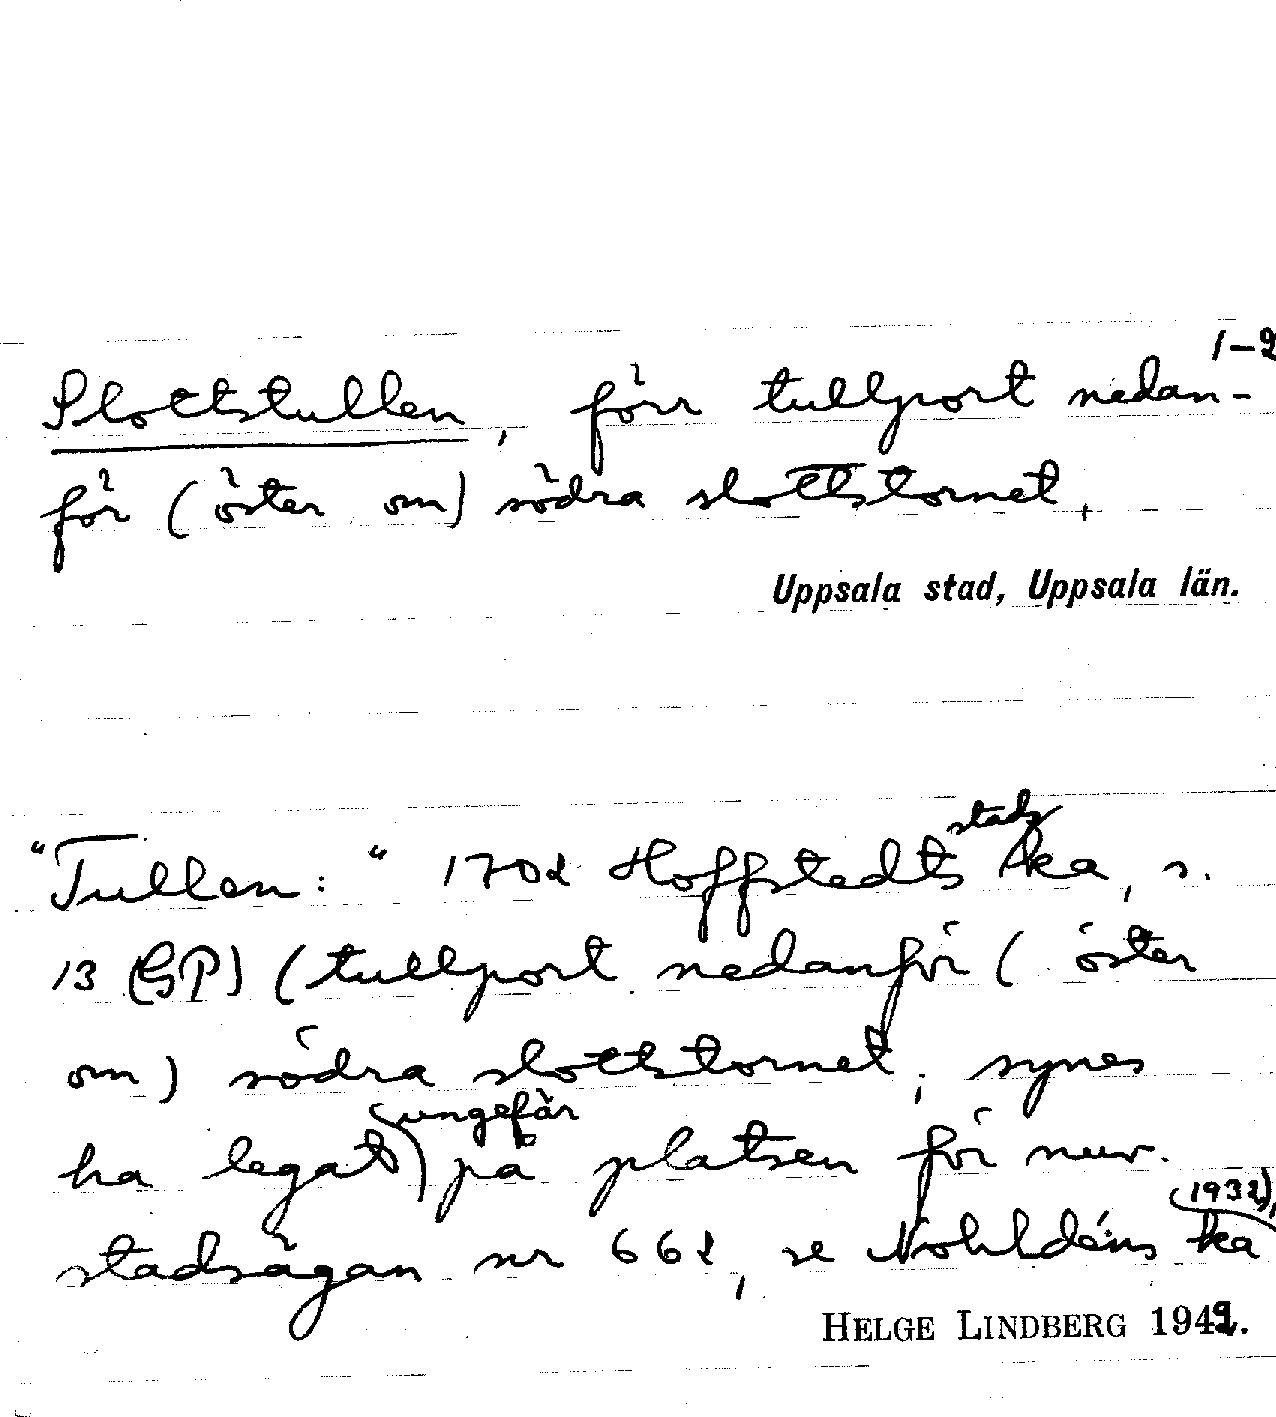 1-2
Slottstullen, förr tullport nedan-
för (öster om) södra slottstornet,
Uppsala stad, Uppsala län.
"Tullen:" 1702 Hoffstedts stadska, s.
13 (GP) (tullport nedanför (öster
om) södra slottstornet, synes
ha legat (ungefär) på platsen för nuv.
stadsägan nr 662, se Nohldéns ka (1932),
HELGE LINDBERG 1942.